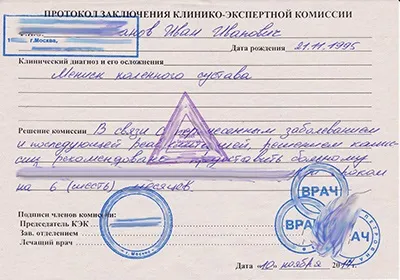 ПРОТОКОЛ ЗАКЛЮЧЕНИЯ КЛИНИКО-ЭКСПЕРТНОЙ КОМИССИИ
Иван Иванович
г.Москва,
Дата рождения 21.11.1995
Клинический диагноз и его осложнения
Мениск коленного сустава
Решение комиссии В связи с перенесенным заболеванием
и последующей реабилитацией, решением комис-
сии рекомендовано предоставить больному
на 6 (шесть) месяцев
Подписи членов комиссии:
Председатель КЭК
Зав. отделением
Лечащий врач
ВРАЧ
ВРАЧ
ВРАЧ
г. Москва
Дата «10» ноября